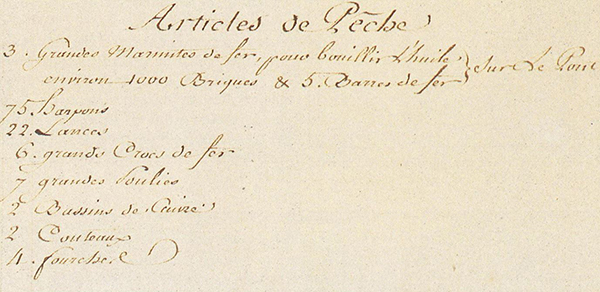 Articles de Pêche
3. Grandes Marmites de fer, pour bouillir L'huile } Sur Le Pont
environ 1000 Briques & 5. Barres de fer
75. harpons
22. Lances
6. grands Crocs de fer
7 grandes Poulies
2 Bassins de Cuivre
2 Couteaux
4. fourches